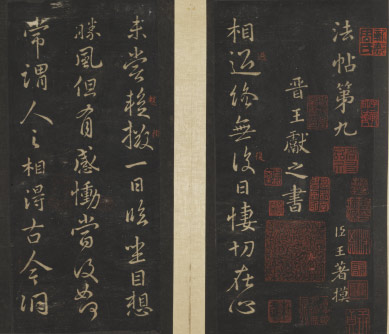 法帖第九
臣王著摸
晉王獻之書
相過終無復日悽切在心
未嘗輟撥一日臨坐目想
勝風但有感慟當復如何
常謂人之相得古今洞